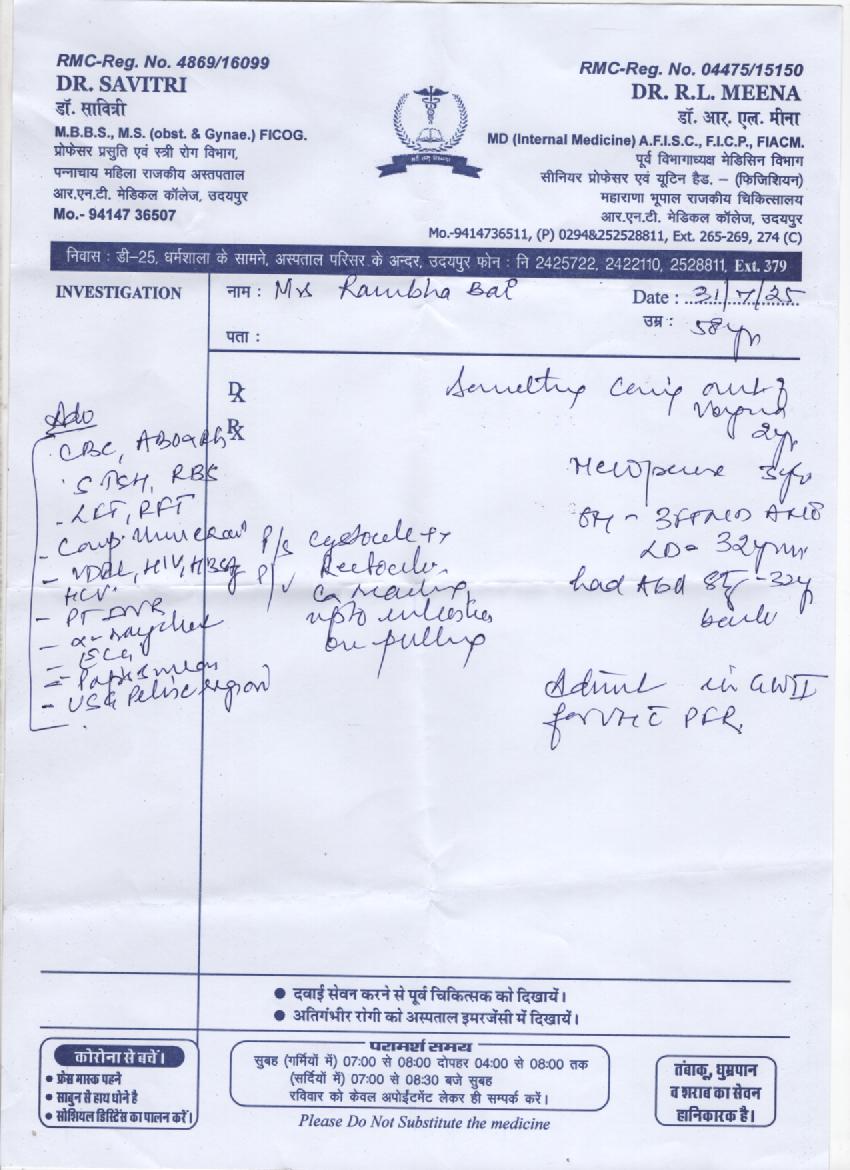 RMC-Reg. No. 4869/16099
DR. SAVITRI
डॉ. सावित्री
M.B.B.S., M.S. (obst. & Gynae.) FICOG.
प्रोफेसर प्रसुति एवं स्त्री रोग विभाग,
पन्नाधाय महिला राजकीय अस्तपताल
आर.एन.टी. मेडिकल कॉलेज, उदयपुर
Mo.- 94147 36507
RMC-Reg. No. 04475/15150
DR. R.L. MEENA
डॉ. आर. एल. मीना
MD (Internal Medicine) A.F.I.S.C., F.I.C.P., FIACM.
पूर्व विभागाध्यक्ष मेडिसिन विभाग
सीनियर प्रोफेसर एवं यूटिन हैड. – (फिजिशियन)
महाराणा भूपाल राजकीय चिकित्सालय
आर.एन.टी. मेडिकल कॉलेज, उदयपुर
Mo.-9414736511, (P) 0294&252528811, Ext. 265-269, 274 (C)
निवास : डी-25, धर्मशाला के सामने, अस्पताल परिसर के अन्दर, उदयपुर फोन : नि 2425722, 2422110, 2528811, Ext. 379
INVESTIGATION
नाम : Mrs Rambha Bai
Date : 31/7/25
उम्र : 58yr
पता :
Dx
Rx
Something coming out of
vagina
2yr
Menopause 5yr
3FTND
LD= 32years
had 32y
back
P/S cystocele
P/V Rectocele
Cx reaching
upto introitus
on pulling
Admit in
for PFR
Adv
CBC, ABO&Rh
S TSH, RBS
- LFT, RFT
- Comp. Urine exam
- VDRL, HIV, HBsAg
HCV
- PT INR
- X-ray chest
- ECG
- Pap smear
- USG Pelvic region
● दवाई सेवन करने से पूर्व चिकित्सक को दिखायें।
● अतिगंभीर रोगी को अस्पताल इमरजेंसी में दिखायें।
कोरोना से बचें।
● फ्रेस मास्क पहने
● साबुन से हाथ धोने है
● सोशियल डिस्टिेंस का पालन करें।
परामर्श समय
सुबह (गर्मियों में) 07:00 से 08:00 दोपहर 04:00 से 08:00 तक
(सर्दियों में) 07:00 से 08:30 बजे सुबह
रविवार को केवल अपोईटमेंट लेकर ही सम्पर्क करें।
Please Do Not Substitute the medicine
तंबाकू, घुम्रपान
व शराब का सेवन
हानिकारक है।